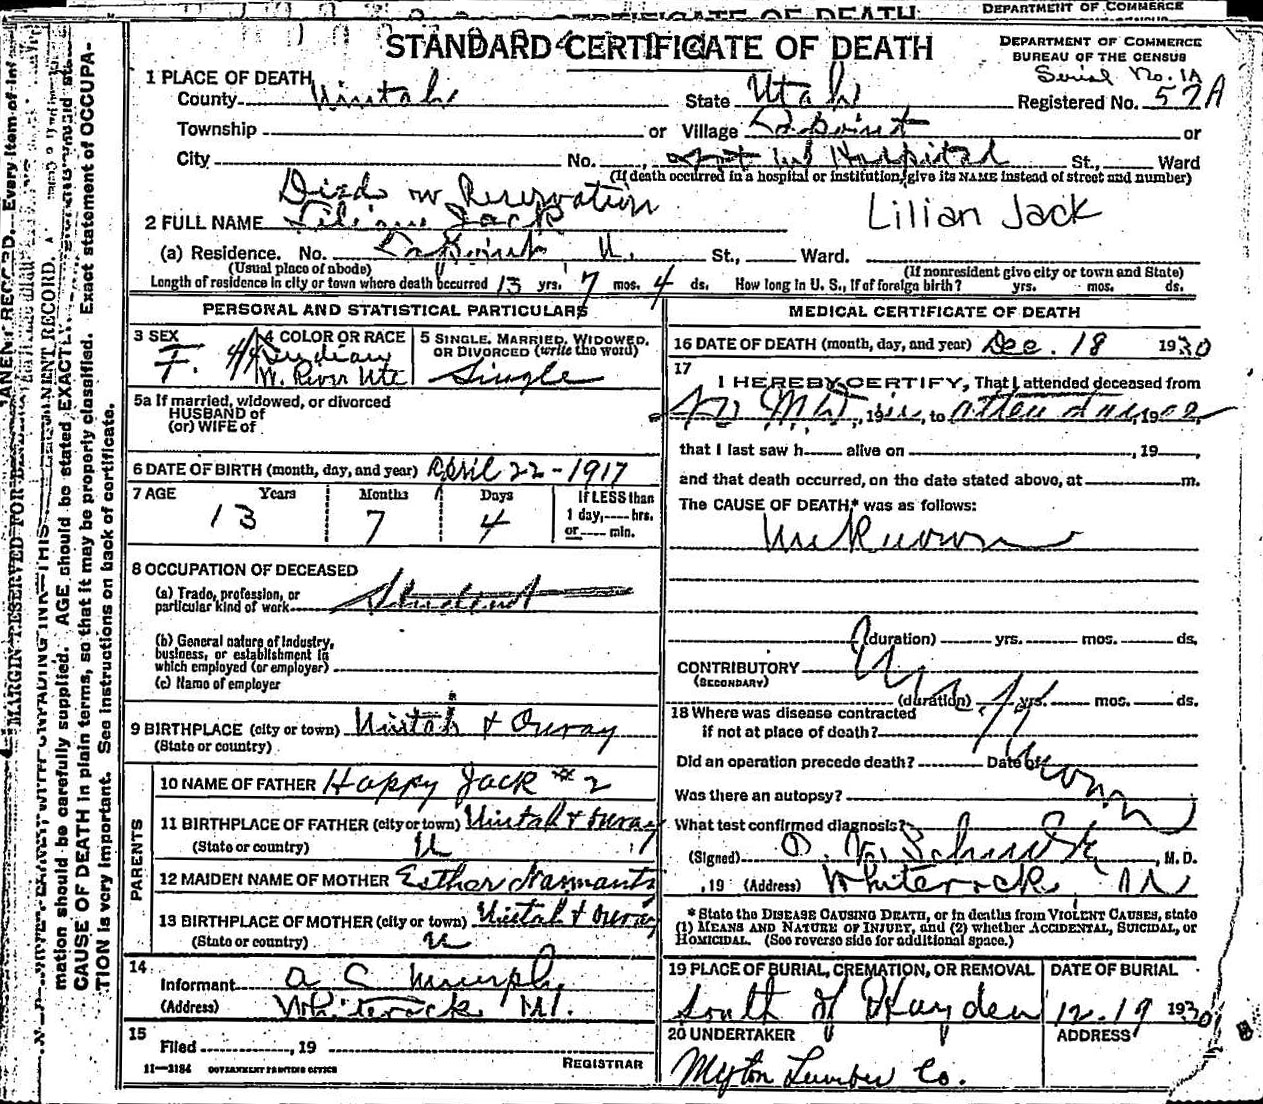 DEPARTMENT OF COMMERCE
CERTIFICATE OF DEATH
STANDARD CERTIFICATE OF DEATH
DEPARTMENT OF COMMERCE
BUREAU OF THE CENSUS
Serial No. 1A
1 PLACE OF DEATH
County Uintah State Utah Registered No. 57A
Township or Village or
City No. Hospital St., Ward
(If death occurred in a hospital or institution, give its NAME instead of street and number)
Died on Reservation
2 FULL NAME Lilian Jack Lilian Jack
(a) Residence. No. U. St., Ward.
(Usual place of abode) (If nonresident give city or town and State)
Length of residence in city or town where death occurred 13 yrs. 7 mos. 4 ds. How long in U. S., if of foreign birth? yrs. mos. ds.
PERSONAL AND STATISTICAL PARTICULARS
3 SEX
F.
4/4
4 COLOR OR RACE
Indian
W. River Ute
5 SINGLE, MARRIED, WIDOWED,
OR DIVORCED (write the word)
Single
5a If married, widowed, or divorced
HUSBAND of
(or) WIFE of
6 DATE OF BIRTH (month, day, and year) April 22 - 1917
7 AGE Years Months Days If LESS than
1 day, hrs.
or min.
13 7 4
8 OCCUPATION OF DECEASED
(a) Trade, profession, or
particular kind of work Student
(b) General nature of industry,
business, or establishment in
which employed (or employer)
(c) Name of employer
9 BIRTHPLACE (city or town) Uintah & Ouray
(State or country)
PARENTS
10 NAME OF FATHER Happy Jack #2
11 BIRTHPLACE OF FATHER (city or town) Uintah & Ouray
(State or country) U
12 MAIDEN NAME OF MOTHER Esther
13 BIRTHPLACE OF MOTHER (city or town) Uintah & Ouray
(State or country) U
14
Informant A C Murphy
(Address) Whiterock
15
Filed , 19
REGISTRAR
11—3184 GOVERNMENT PRINTING OFFICE
MEDICAL CERTIFICATE OF DEATH
16 DATE OF DEATH (month, day, and year) Dec. 18 1930
17
I HEREBY CERTIFY, That I attended deceased from
No M.D. , 19 in, to attendance, 19
that I last saw h alive on , 19 ,
and that death occurred, on the date stated above, at m.
The CAUSE OF DEATH* was as follows:
Unknown
(duration) yrs. mos. ds.
CONTRIBUTORY
(SECONDARY)
(duration) yrs. mos. ds.
Unknown
18 Where was disease contracted
if not at place of death?
Did an operation precede death? Date of
Was there an autopsy?
What test confirmed diagnosis?
(Signed) , M. D.
, 19 (Address) Whiterock
* State the DISEASE CAUSING DEATH, or in deaths from VIOLENT CAUSES, state
(1) MEANS AND NATURE OF INJURY, and (2) whether ACCIDENTAL, SUICIDAL, or
HOMICIDAL. (See reverse side for additional space.)
19 PLACE OF BURIAL, CREMATION, OR REMOVAL
South of Hayden
DATE OF BURIAL
12-19 1930
20 UNDERTAKER ADDRESS
Myton Lumber Co.
MARGIN RESERVED FOR BINDING
mation should be carefully supplied. AGE should be stated EXACTLY.
CAUSE OF DEATH in plain terms, so that it may be properly classified. Exact statement of OCCUPA-
TION is very important. See instructions on back of certificate.